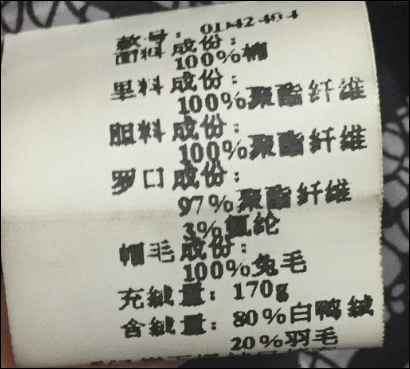 款号: 0142404
面料成份:
100%棉
里料成份:
100%聚酯纤维
胆料成份:
100%聚酯纤维
罗口成份:
97%聚酯纤维
3%氨纶
帽毛成份:
100%兔毛
充绒量: 170g
含绒量: 80%白鸭绒
20%羽毛